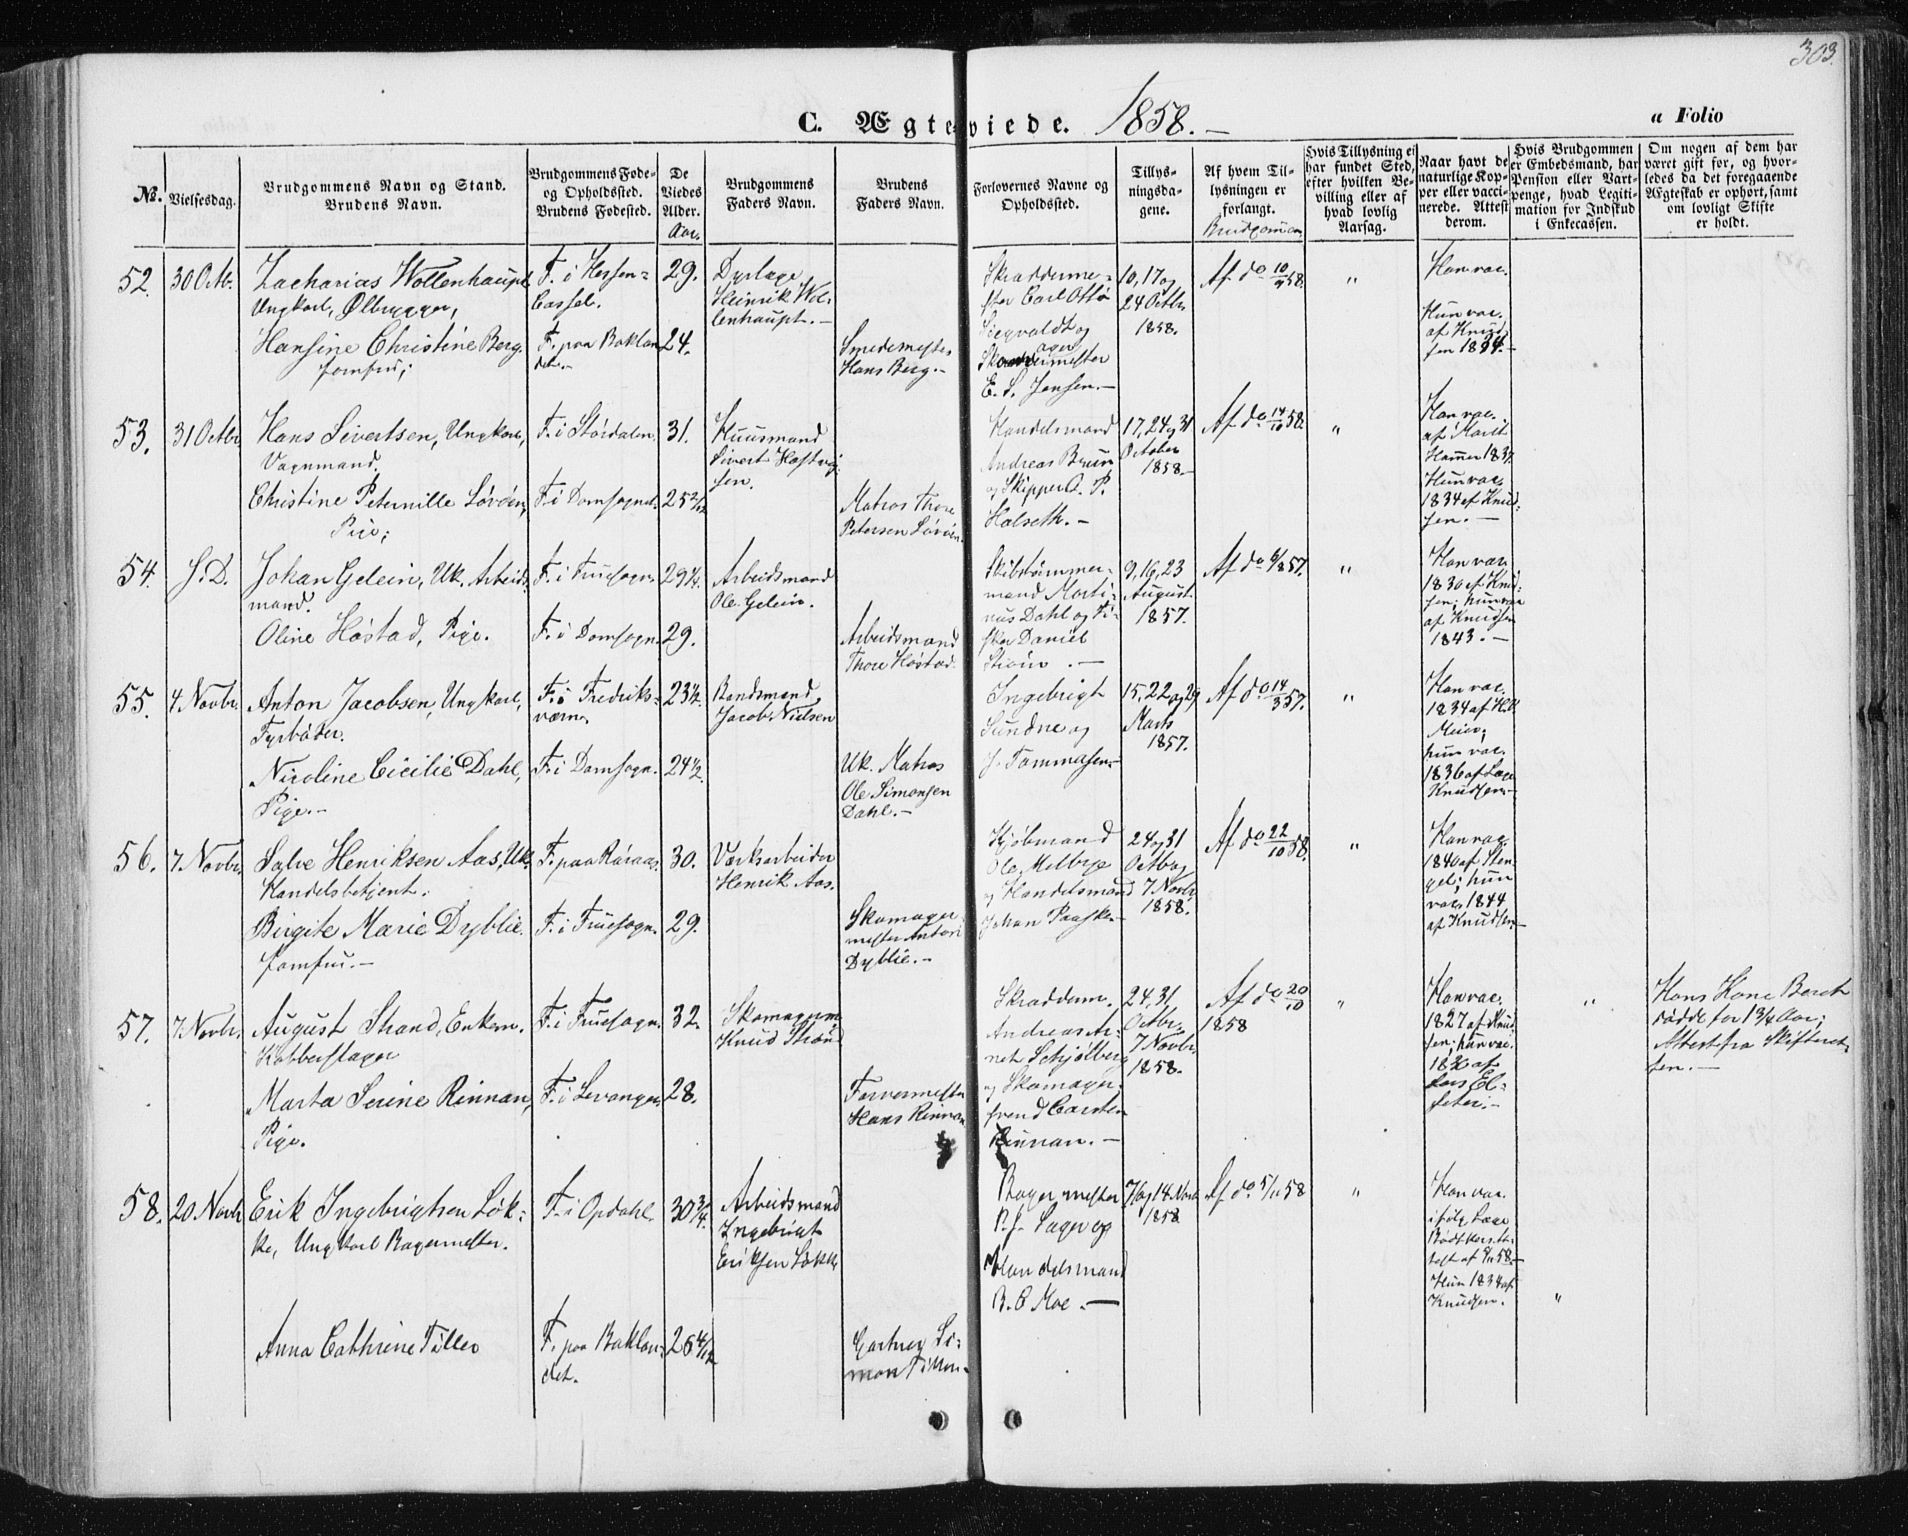 303.
C. Ægteviede. 1858.
a Folio
No.
Vielsesdag.
Brudgommens Navn og Stand.
Brudens Navn.
Brudgommens Føde-
og Opholdssted.
Brudens Fødested.
De
Viedes
Alder.
Aar.
Brudgommens
Faders Navn.
Brudens
Faders Navn.
Forlovernes Navne og
Opholdssted.
Tillys-
ningsda-
gene.
Af hvem Til-
lysningen er
forlangt.
Brudgommen
Hvis Tillysning ei
har fundet Sted,
efter hvilken Be-
villing eller af
hvad lovlig
Aarsag.
Naar havt de
naturlige Kop-
per eller vacci-
nerede. Attest
derom.
Hvis Brudgommen
er Embedsmand, har
Pension eller Vart-
penge, hvad Legiti-
mation for Indskud
i Enkecassen.
Om nogen af dem har
været gift før, og hvor-
ledes da det foregaaende
Ægteskab er ophørt, samt
om lovligt Skifte
er holdt.
52. 30 Octb.
Zacharias Wollenhaupt
Ungkarl, Ølbrygger,
Hansine Christine Berg.
Jomfru;
F. i Hessen-
Cassel.
F. paa Baklan
det.
29.
24.
Heinrik Wol-
lenhaupt.
Smedemester
Hans Berg.
Skrædderme-
ster Carl Otto
Siegvaldt og
E. S. Jensen.
10, 17 og
24 Octbr.
1858.
Af do 58.
"
Han vac.
Hun vac.
af Knud
sen 1834.
53. 31 Octbr
Hans Sivertsen, Ungkarl,
Vognmand.
Christine Peternille Løvøen,
Pige;
F. i Stördalen.
F. i Domsognet.
31.
25 2/12
Huusmand
Sivert
sen.
Matros Thore
Petersen Løvøen.
Handelsmand
Andreas Bruun
og Skipper O. P.
Halseth.
17, 24 og 31
October
1858.
Af do 14/10 58.
"
Han vac.
af Marit
Hamer 1837.
Hun vac.
1834 af Knud-
sen.
54. S. D.
Johan Gelein, Uk. Arbeids
mand.
Oline Høstad, Pige.
F. i Fruesogn.
F. i Domsogn.
29 1/4.
29.
Arbeidsmand
Ole Gelein.
Arbeidsmand
Thore Høstad.
Skibstømmer-
mand Marti-
nus Dahl og Fi-
sker Daniel
9, 16, 23
August
1857.
Af do 6/8 57.
"
Han vac,
1830 af Knud-
sen; hun vac
af Knudsen
1843.
55. 4 Novbr.
Anton Jacobsen, Ungkarl,
Fyrbøder.
Nicoline Cicilie Dahl,
Pige.
F. i Fredriks-
værn.
F. i Domsogn.
23 1/2.
24 1/2.
Baadsmand
Jacob Nielsen
Uk. Matros
Ole Simonsen
Dahl.
Ingebrigt
Sundne og
J. Tommasen
15, 22 og 29
Marts
1857.
Af do 14/3 57.
"
Han vac.
1834 af
Meier;
hun vac.
1836 af
Knudsen.
56. 7. Novbr.
Salve Henriksen Aas, Uk.
Handelsbetjent.
Birgite Marie Dyblie.
Jomfru.
F. paa Røraas
F. i Fruesogn.
30.
29.
Værksarbeider
Henrik Aas.
Skomager
mester Anton
Dyblie.
Kjøbmand
Ole Melbye
og Handelsmand
Johan Paaske.
24 og 31
Octb og
7 Novbr
1858.
Af do 22/10 58.
"
Han vac.
1840 af Sten-
gel; hun
vac. 1844
af Knudsen
57. 7. Novbr.
August Strand, Enkem.
Kobberslager
Marta Serine Rinnan,
Pige.
F. i Fruesogn.
F. i Levanger
32.
28.
Skomagerm
Knud
Farvermester
Hans Rinnan
Skrædderm.
Andreas Ar-
net Schjølberg
og Skomager-
svend Carsten
Rinnan.
24, 31
Octbr.
7 Novbr
1858.
Af do 20/10
1858
"
Han vac.
1827 af Knud
sen; hun vac.
1830 af
"
Hans Kone Bereth
døde for 1 3/4 Aar;
Attest fra Skifteret-
ten.
58. 20 Novbr
Erik Ingebrigtsen Løk-
ke, Ungkarl Bagermester.
Anna Cathrine Tiller
F. i Opdahl.
F. paa Baklan-
det.
30 3/4.
26 4/12
Arbeidsmand
Ingebrigt
Eriksen Løkke
Gartner Si-
mon Tiller
Bager mester
Lager og
Handelsmand
B. C Moe.
7 og 14 Novb.
1858
Af do 5/11 58
"
Han vac.
ifølg Læge
58.
Hun 1834 af
Knudsen.
"